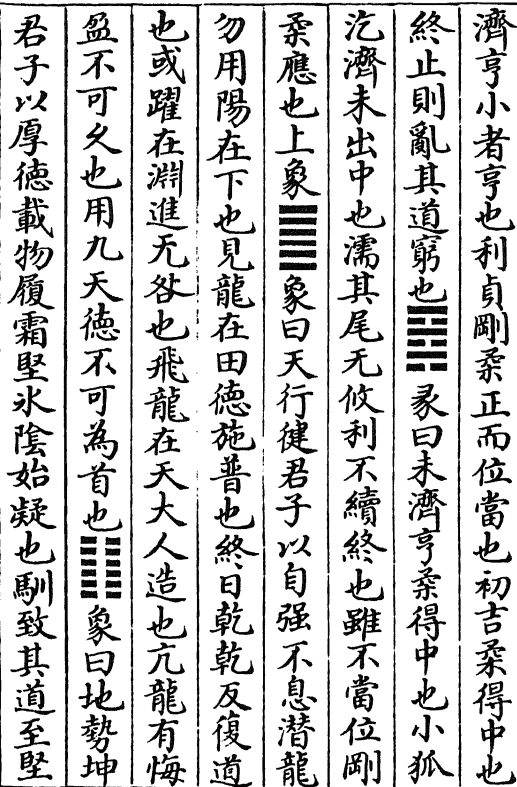 濟亨小者亨也利貞剛柔正而位當也初吉柔得中也
終止則亂其道窮也䷿彖曰未濟亨柔得中也小狐
汔濟未出中也濡其尾无攸利不續終也雖不當位剛
柔應也上象䷀象曰天行健君子以自强不息潛龍
勿用陽在下也見龍在田德施普也終日乾乾反復道
也或躍在淵進无咎也飛龍在天大人造也亢龍有悔
盈不可久也用九天德不可為首也䷁象曰地勢坤
君子以厚德載物履霜堅氷陰始凝也馴致其道至堅